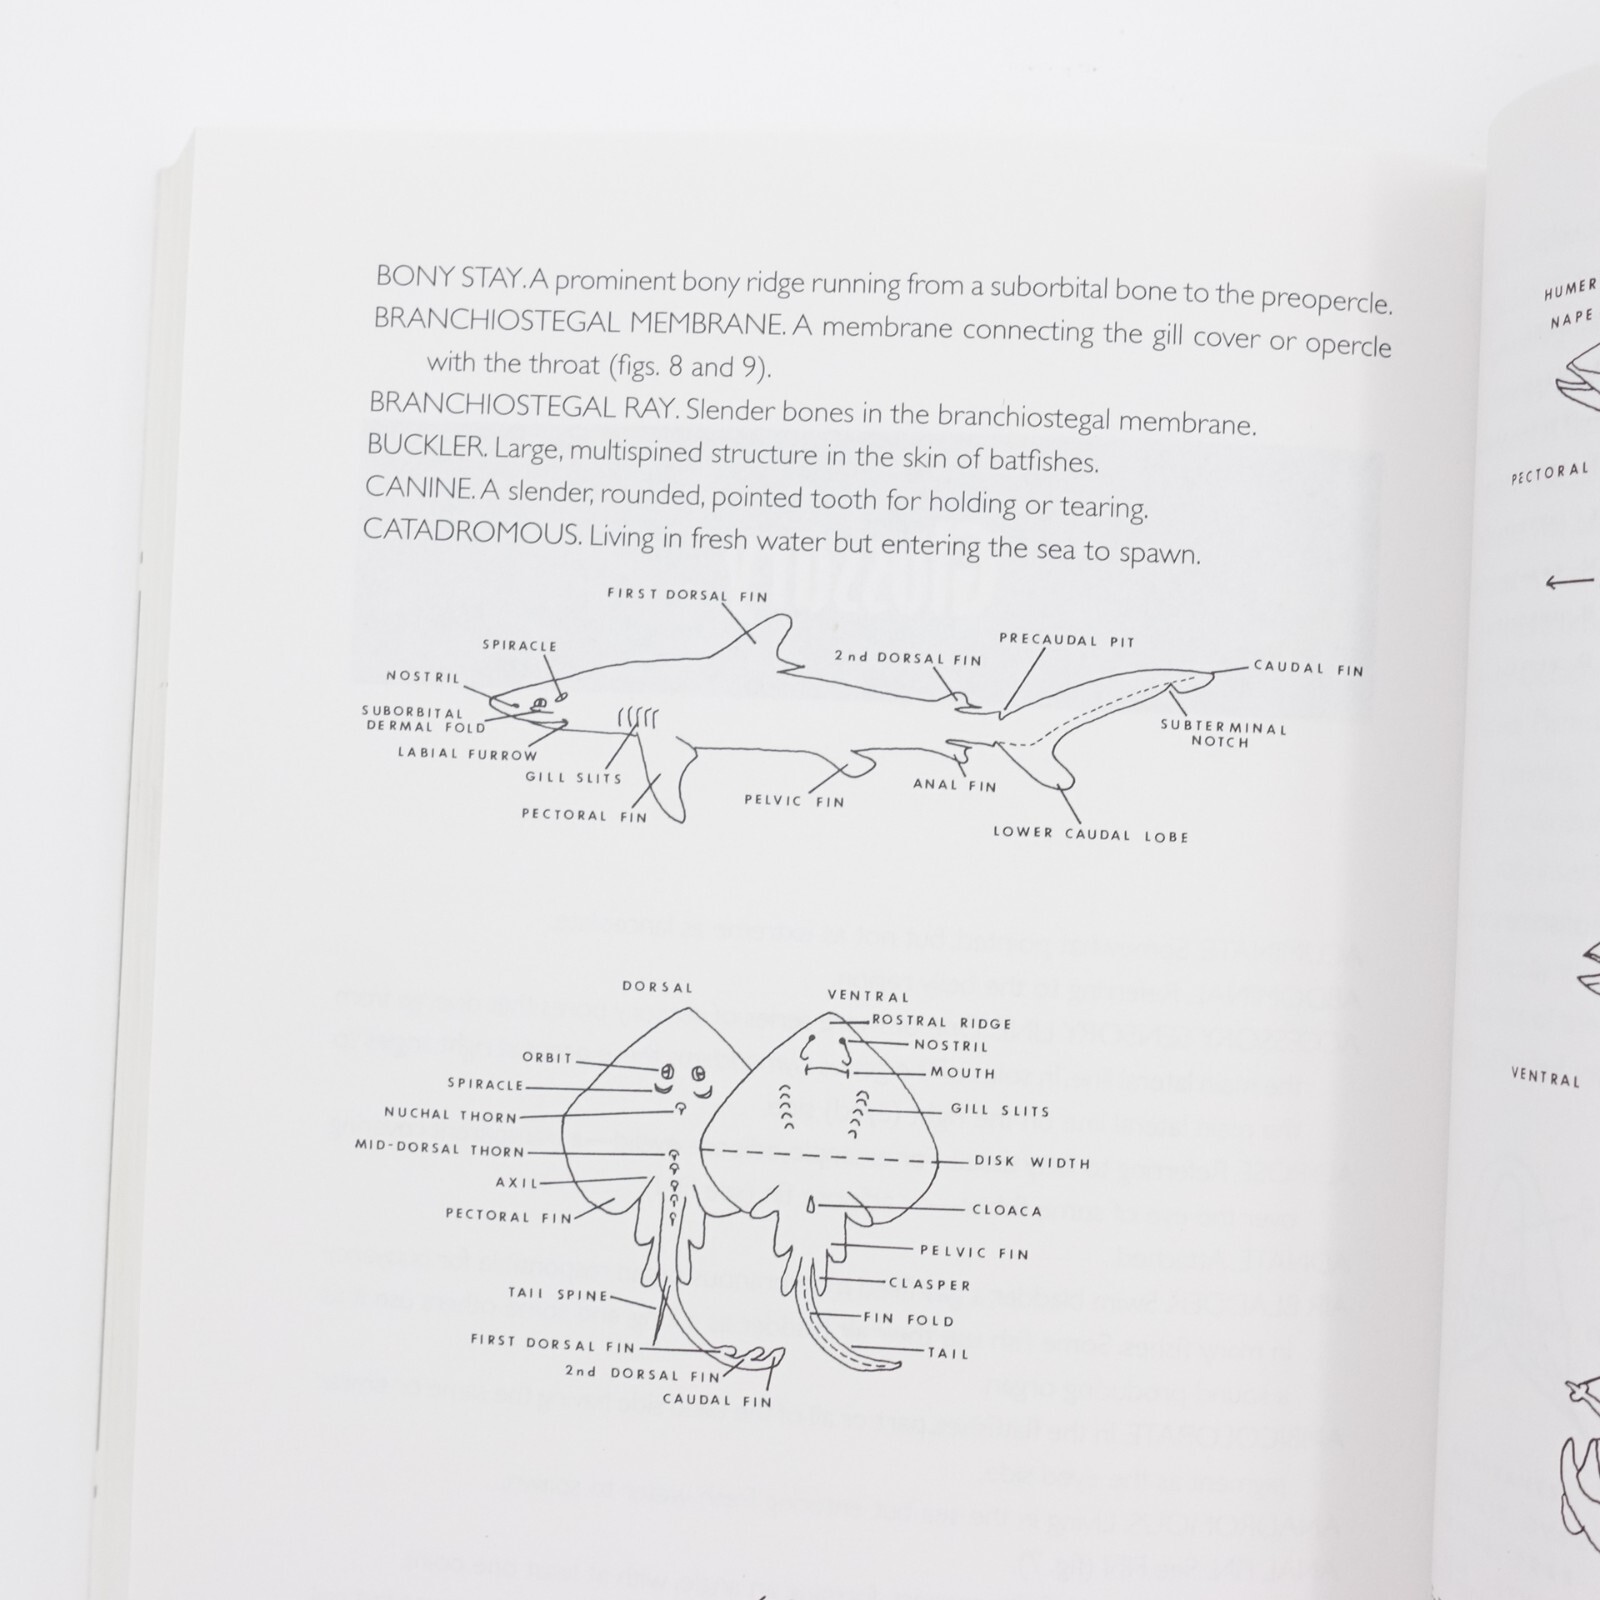 BONY STAY. A prominent bony ridge running from a suborbital bone to the preopercle.
BRANCHIOSTEGAL MEMBRANE. A membrane connecting the gill cover or opercle
with the throat (figs. 8 and 9).
BRANCHIOSTEGAL RAY. Slender bones in the branchiostegal membrane.
BUCKLER. Large, multispined structure in the skin of batfishes.
CANINE. A slender, rounded, pointed tooth for holding or tearing.
CATADROMOUS. Living in fresh water but entering the sea to spawn.
FIRST DORSAL FIN
SPIRACLE
NOSTRIL
SUBORBITAL
DERMAL FOLD
LABIAL FURROW
GILL SLITS
PECTORAL FIN
2nd DORSAL FIN
PRECAUDAL PIT
CAUDAL FIN
SUBTERMINAL
NOTCH
PELVIC FIN
ANAL FIN
LOWER CAUDAL LOBE
DORSAL
ORBIT
SPIRACLE
NUCHAL THORN
MID-DORSAL THORN
AXIL
PECTORAL FIN
TAIL SPINE
FIRST DORSAL FIN
2nd DORSAL FIN
CAUDAL FIN
VENTRAL
ROSTRAL RIDGE
NOSTRIL
MOUTH
GILL SLITS
DISK WIDTH
CLOACA
PELVIC FIN
CLASPER
FIN FOLD
TAIL
NAPE
PECTORAL
VENTRAL